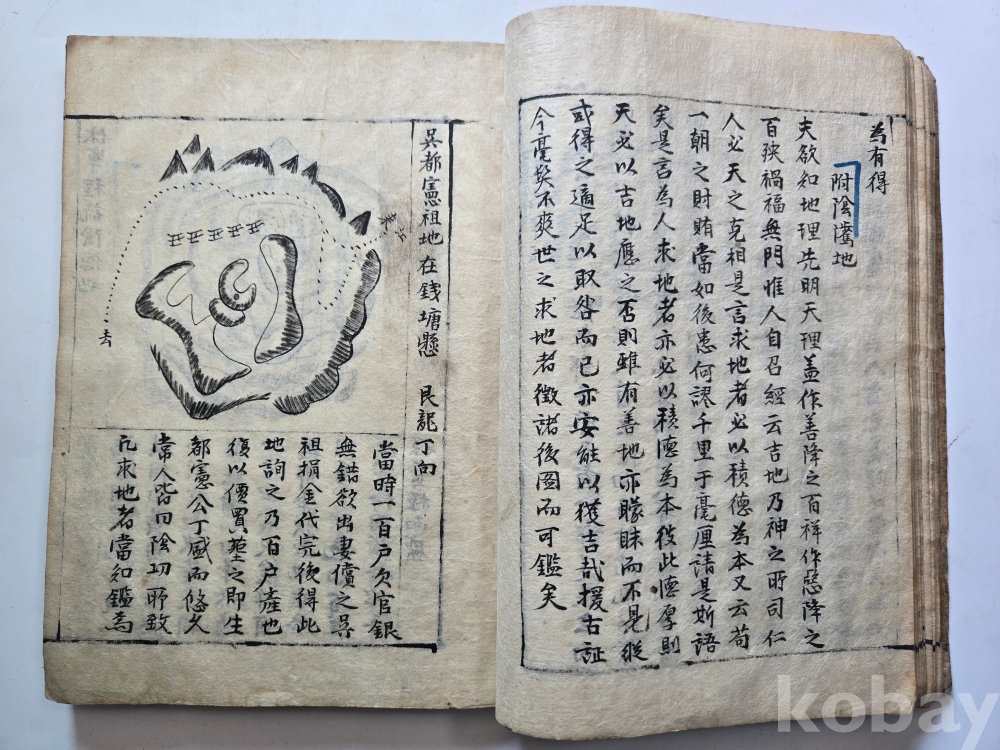 為有得
附陰騭地
夫欲知地理先明天理盖作善降之百祥作惡降之
百殃禍福無門惟人自召經云吉地乃神之所司仁
人必天之克相是言求地者必以積德為本又云苟
一朝之財賄當如後患何謬千里于毫厘請是斯語
矣是言為人求地者亦必以積德為本彼此德厚則
天必以吉地應之否則雖有善地亦矇昧而不見縱
或得之適足以取咎而已亦安能以獲吉哉援古証
今毫髮不爽世之求地者徵諸後圖而可鑑矣
吳都憲祖地在錢塘懸 艮龍丁向
丑丑丑丑丑
来
去
當時一百户欠官銀
無錯欲出妻償之吳
祖捐金代完後得此
地詢之乃百户產也
復以價買塟之即生
都憲公丁盛而悠久
常人皆曰陰功所致
凢求地者當知鑑焉
kobay